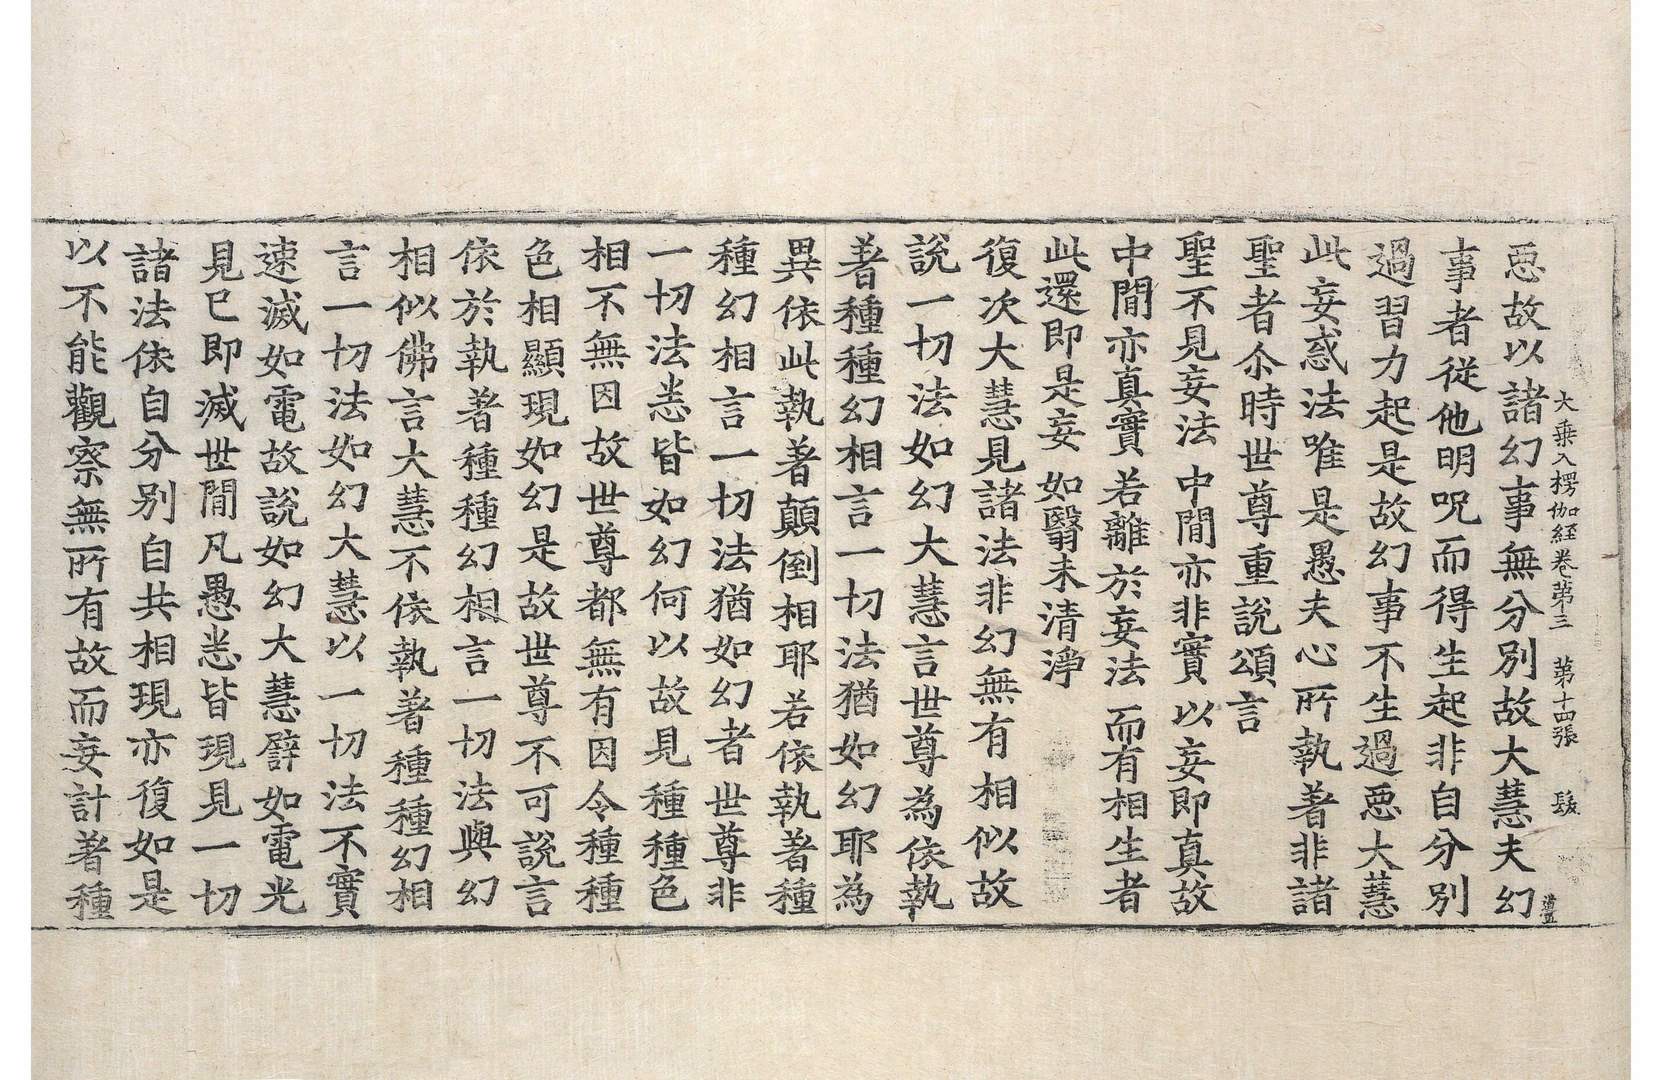 大乗入楞伽経卷第三　第十四張　髮
惡故以諸幻事無分別故大慧夫幻
事者從他明呪而得生起非自分別
過習力起是故幻事不生過惡大慧
此妄惑法唯是愚夫心所執著非諸
聖者尒時世尊重說頌言
聖不見妄法　中間亦非實　以妄即真故
中間亦真實　若離於妄法　而有相生者
此還即是妄　如翳未清淨
復次大慧見諸法非幻無有相似故
說一切法如幻大慧言世尊為依執
著種種幻相言一切法猶如幻耶為
異依此執著顛倒相耶若依執著種
種幻相言一切法猶如幻者世尊非
一切法悉皆如幻何以故見種種色
相不無因故世尊都無有因令種種
色相顯現如幻是故世尊不可說言
依於執著種種幻相言一切法與幻
相似佛言大慧不依執著種種幻相
言一切法如幻大慧以一切法不實
速滅如電故說如幻大慧譬如電光
見已即滅世間凡愚悉皆現見一切
諸法依自分別自共相現亦復如是
以不能觀察無所有故而妄計著種